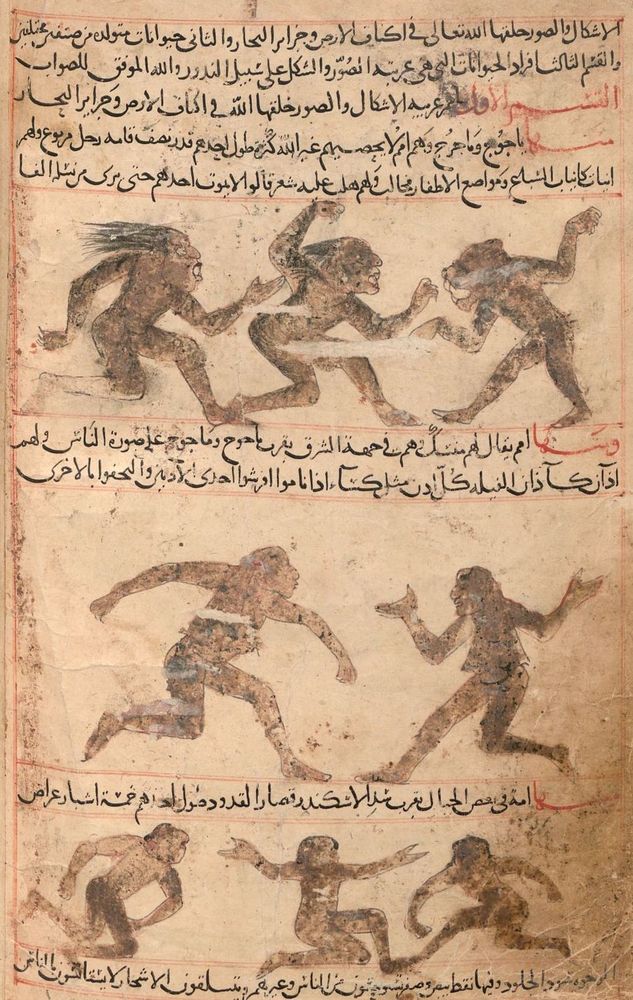 الاشكال والصور خلقها الله تعالى فى اكناف الارض وجزاير البحار والثانى حيوانات متولده من صنفين مختلفين
والقسم الثالث افراد الحيوانات التى هى غريبة الصور والشكل على سبيل الندور والله الموفق للصواب
القسم الاول امم غريبه الاشكال والصور خلقها الله فى اكناف الارض وجزاير البحار
منها ياجوج وماجوج وهم امم لا يحصيهم غير الله كثرة طول احدهم قدر نصف قامه رجل مربوع ولهم
انياب كانياب السباع ومواضع الاظفار مخالب ولهم هلب عليه شعر قالوا لا يموت احدهم حتى يرى من نسله الفا
ومنها امم يقال لهم منسك وهم فى جهة الشرق بقرب ياجوج وماجوج على صورة الناس ولهم
اذان كآذان الفيله كل اذن مثل كساء اذا ناموا افرشوا احدى الاذنين والتحفوا بالاخرى
ومنها امة فى بعض الجبال بقرب سد الاسكندر قصار القدود طول احدهم خمسة اشبار عراض
الوجوه سود الجلود وفيها نقط بيض وصفر يتسلقون الاشجار لا يستانسون بالناس